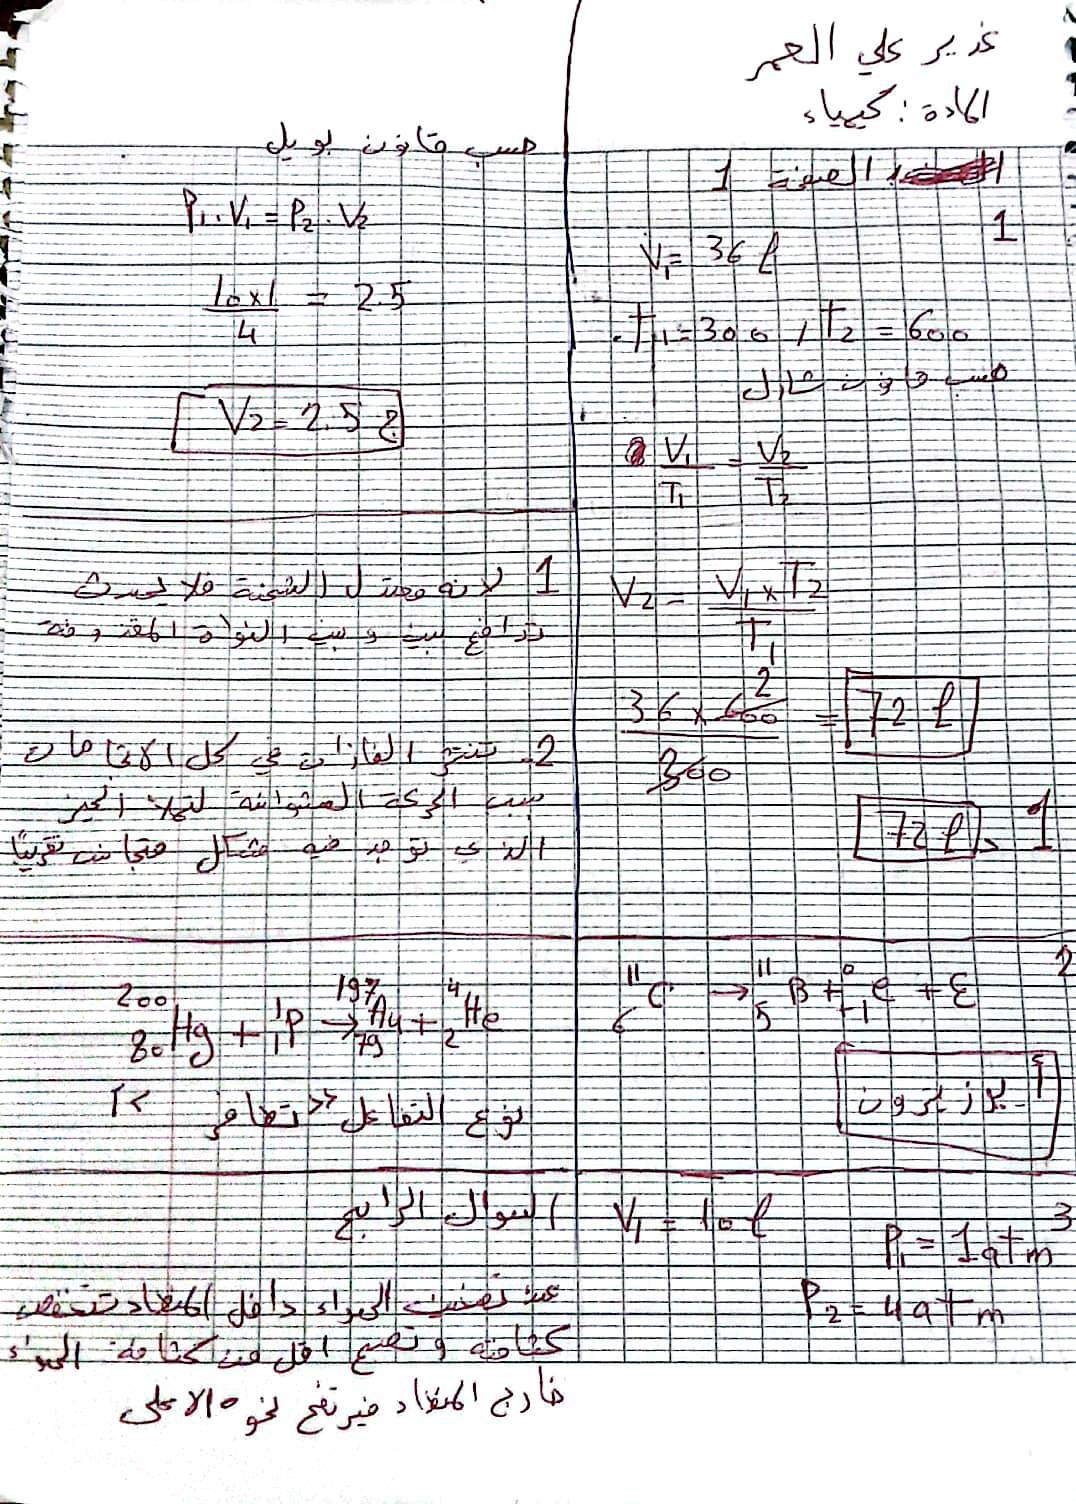 غدير علي العمر
المادة : كيمياء
الصفحة 1
1
V₁ = 36 l
T₁ = 300 , T₂ = 600
حسب قانون شارل
V₁/T₁ = V₂/T₂
V₂ = V₁ × T₂ / T₁
36 × 600 / 300 = 72 l
2
72 l > 1
2
¹¹₆C → ¹¹₅B + ⁰₊₁e + E
أ - بوزيترون
3
V₁ = 10 l
P₁ = 1 atm
P₂ = 4 atm
حسب قانون بويل
P₁ . V₁ = P₂ . V₂
10×1 / 4 = 2.5
V₂ = 2.5 l
1 لانه معتدل الشحنة فلا يحدث
تدافع بين وبين النواة المقذوفة
2- تنتشر الغازات في كل الاتجاهات
بسبب الحركة العشوائية لتملأ الحيز
الذي توجد فيه بشكل متجانس تقريبًا
²⁰⁰₈₀Hg + ¹₁P → ¹⁹⁷₇₉Au + ⁴₂He
نوع التفاعل >> تطافر
السوال الرابع
عند تسخين الهواء داخل المنطاد تنخفض
كثافته وتصبح اقل من كثافة الهواء
خارج المنطاد فيرتفع نحو الاعلى